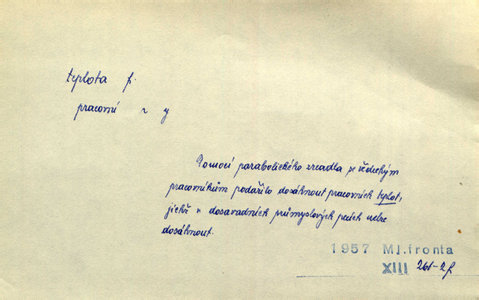 teplota f.
pracovní ~ y
Pomocí parabolického zrcadla se vědeckým
pracovníkům podařilo dosáhnout pracovních teplot,
jichž v dosavadních průmyslových pecích nelze
dosáhnout.
1957 Ml.fronta
XIII 261-2f